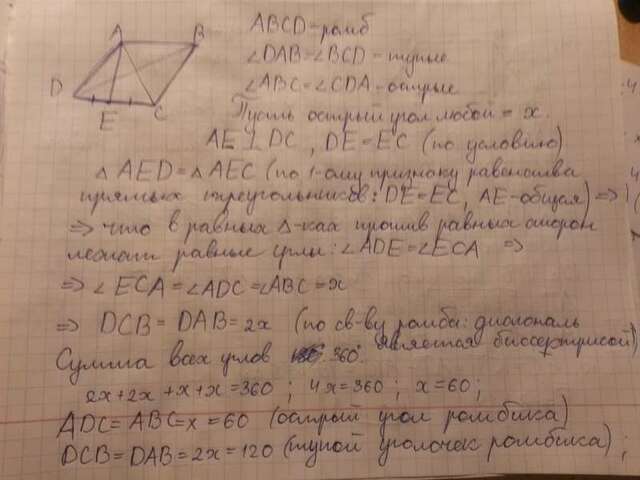 ABCD - ромб
∠DAB = ∠BCD - тупые
∠ABC = ∠CDA - острые
Пусть острый угол любой = x.
AE ⊥ DC, DE = EC (по условию)
△AED = △AEC (по 1-ому признаку равенства
прямых треугольников: DE = EC, AE - общая) =>
=> что в равных △-ках против равных сторон
лежат равные углы: ∠ADE = ∠ECA =>
=> ∠ECA = ∠ADC = ∠ABC = x
=> DCB = DAB = 2x (по св-ву ромба: диагональ
является биссектрисой)
Сумма всех углов 360°.
2x + 2x + x + x = 360 ; 4x = 360 ; x = 60 ;
ADC = ABC = x = 60 (острый угол ромбика)
DCB = DAB = 2x = 120 (тупой уголочек ромбика) ;
A
B
D
E
C